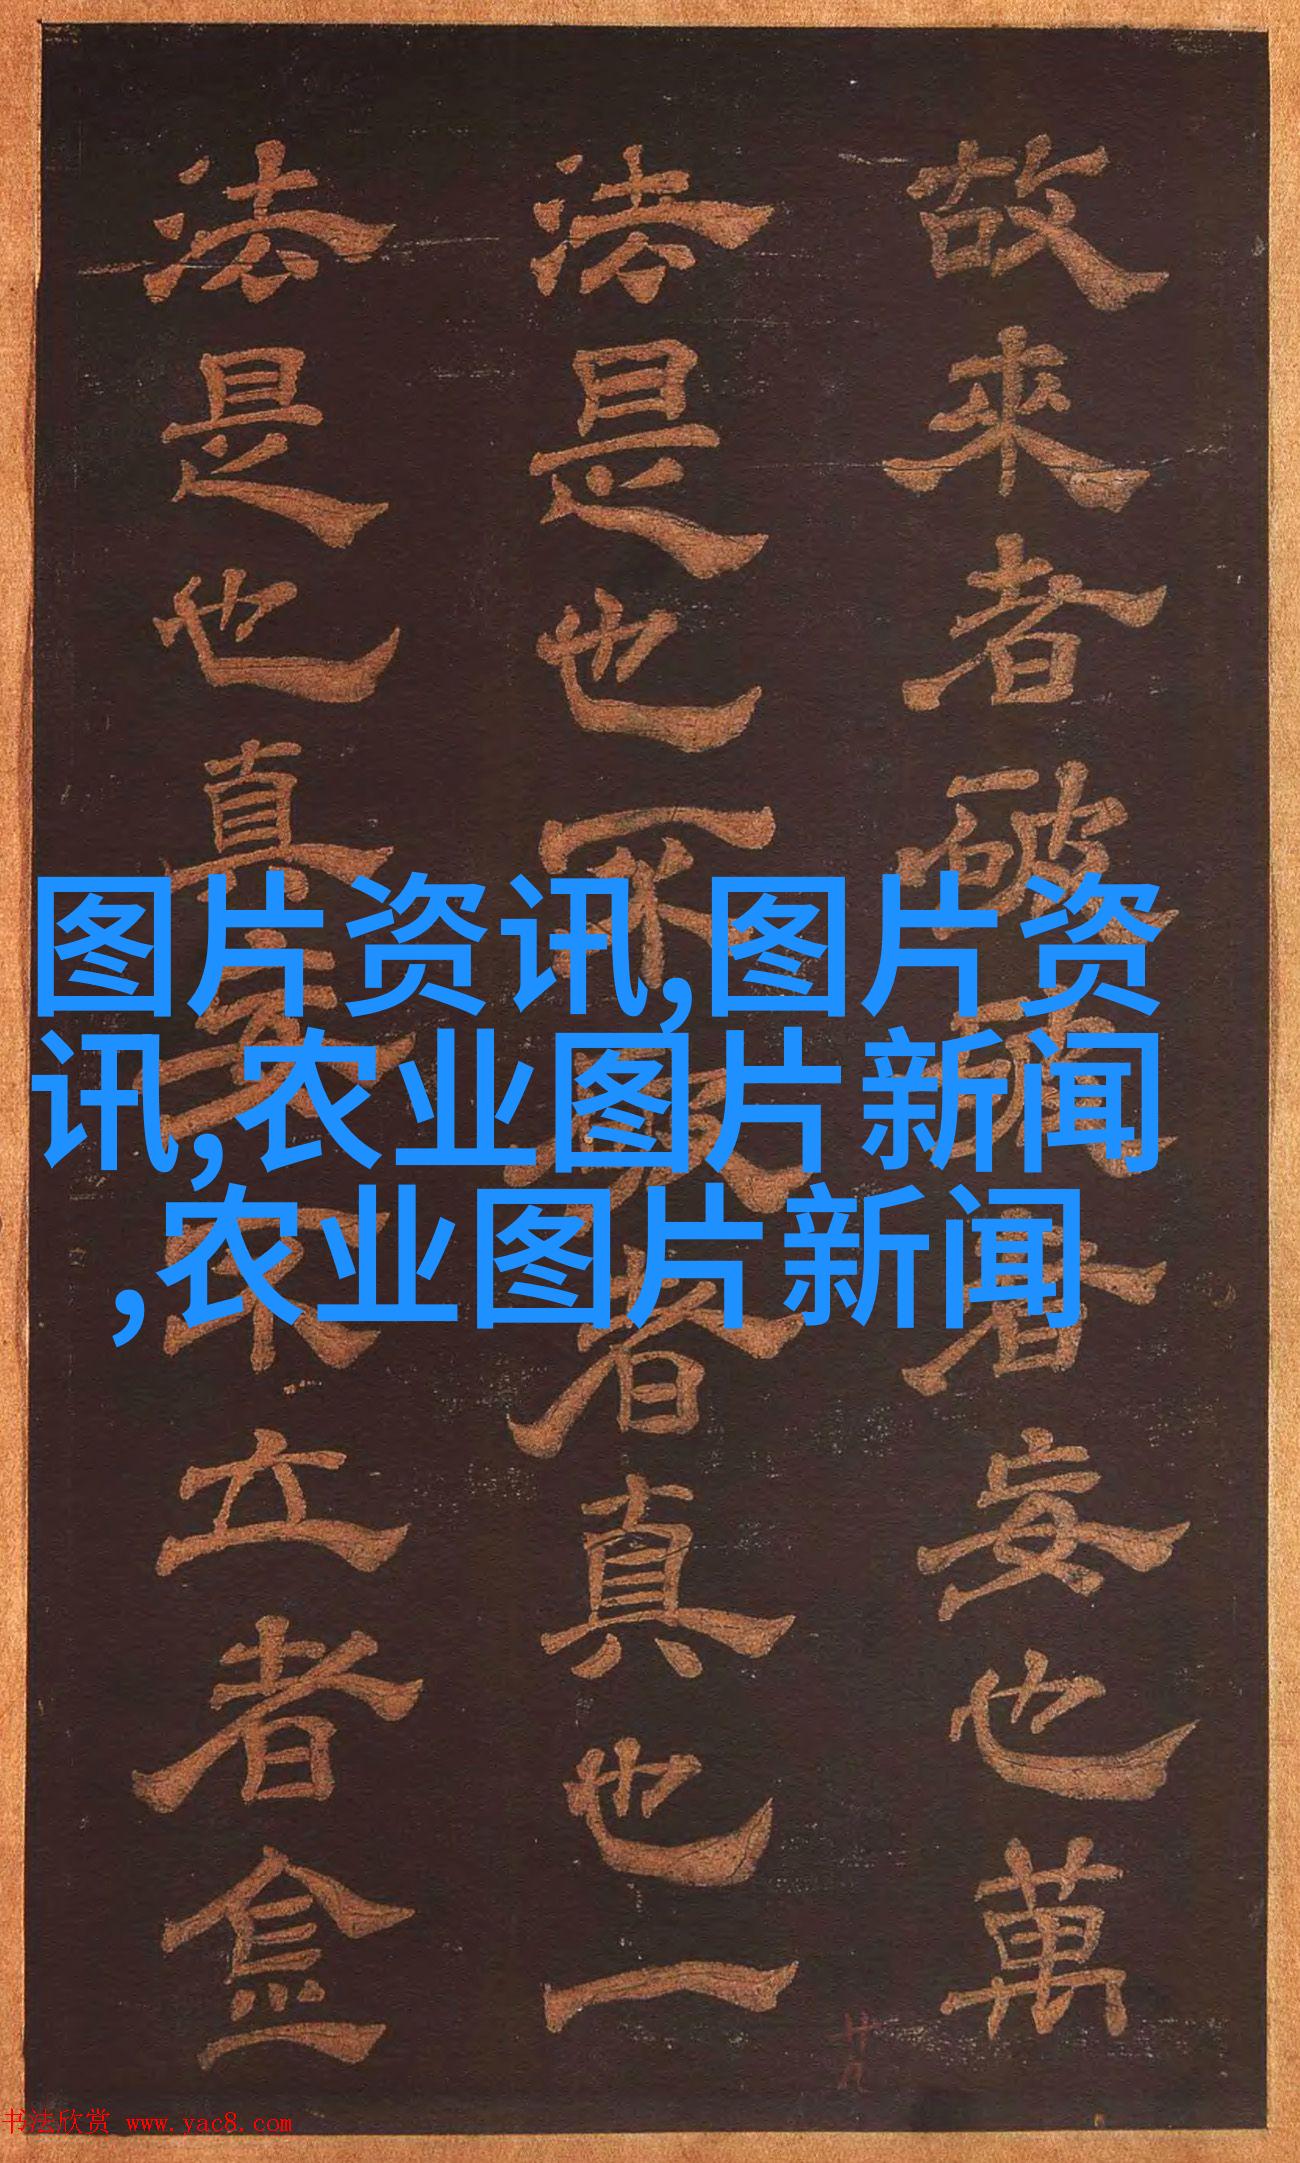 故來者者妄也萬
法是也者真也一
法是也真妄不立者
图片资讯,图片资
讯,农业图片新闻
,农业图片新闻
书法欣赏 www.yac8.com